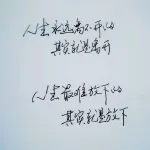 人生永远离不开的
其实就是离开
人生最难放下的
其实就是放下